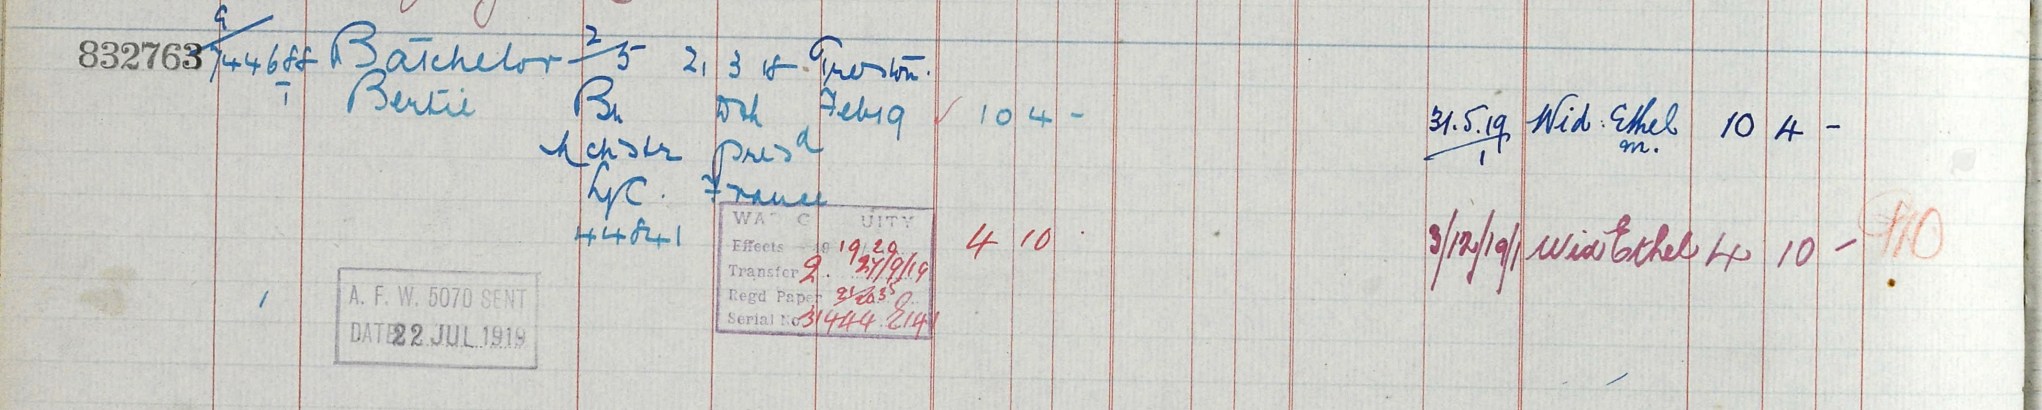 9
832763 744688 Batchelor 2/5 2, 3 18 Preston.
1 Bertie Bn Dth Feb 19 ✓ 10 4 - 31.5.19 Wid. Ethel 10 4 -
1 m.
Mchstr presd
L/C. France
44841
WAR G UITY
4 10 3/12/19/1 Wid Ethel 4 10 - 410
Effects 19 20
Transfer 2. 27/9/19
Regd Paper
Serial No 31444
A. F. W. 5070 SENT
DATE 22 JUL 1919